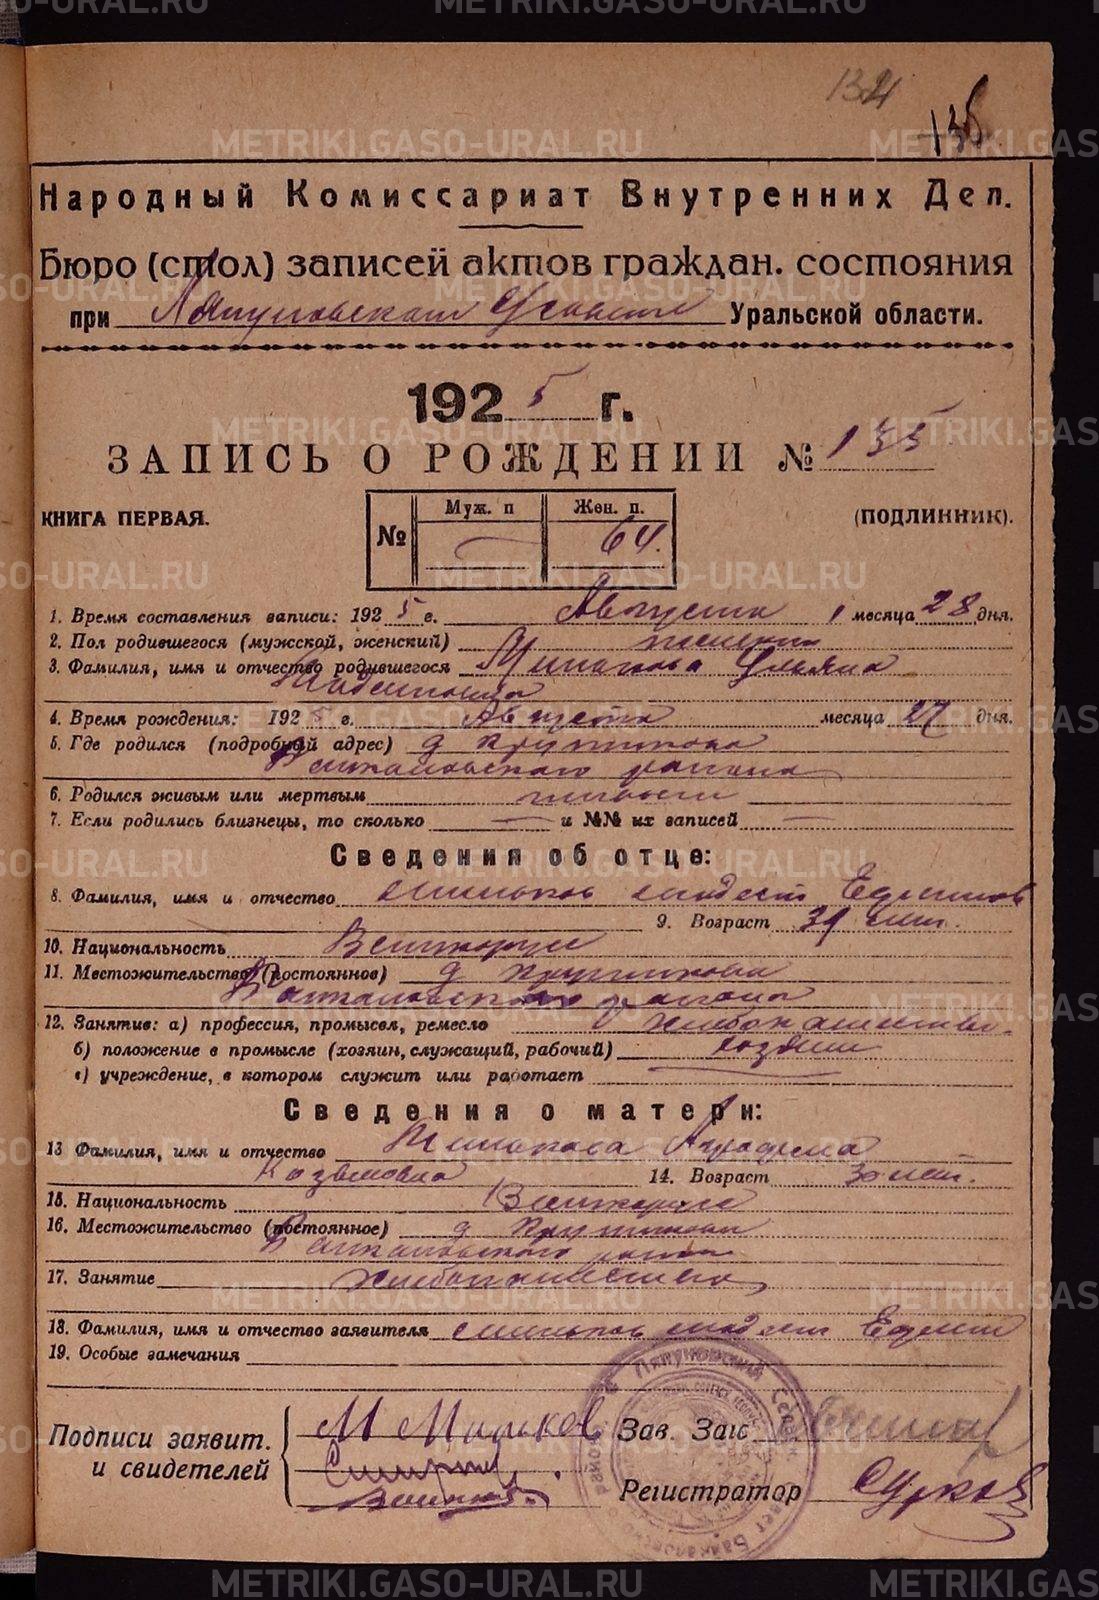 134
135
Народный Комиссариат Внутренних Дел.
Бюро (стол) записей актов граждан. состояния
при Ляпуновском Уральской области.
1925 г.
ЗАПИСЬ О РОЖДЕНИИ № 135
КНИГА ПЕРВАЯ.
(ПОДЛИННИК).
№ Муж. п Жен. п.
64.
1. Время составления записи: 1925 г. Августа месяца 28 дня.
2. Пол родившегося (мужской, женский) женский
3. Фамилия, имя и отчество родившегося Минькова Ульяна
4. Время рождения: 1925 г. Августа месяца 27 дня.
5. Где родился (подробный адрес) д Крутикова
Байкаловского района
6. Родился живым или мертвым живым
7. Если родились близнецы, то сколько — и №№ их записей —
Сведения об отце:
8. Фамилия, имя и отчество Миньков Модест Ефимов
9. Возраст лет.
10. Национальность Великорус
11. Местожительство (постоянное) д Крутикова
Байкаловского района
12. Занятие: а) профессия, промысел, ремесло хлебопашество
б) положение в промысле (хозяин, служащий, рабочий) хозяин
в) учреждение, в котором служит или работает
Сведения о матери:
13 Фамилия, имя и отчество Минькова
Козьмовна 14. Возраст 30 лет.
15. Национальность Великорус
16. Местожительство (постоянное) д Крутикова
Байкаловского района
17. Занятие хлебопашество
18. Фамилия, имя и отчество заявителя Миньков Модест Ефим
19. Особые замечания
Подписи заявит. М Миньков Зав. Загс
и свидетелей Смирнов
Регистратор Сурков
Ляпуновский
METRIKI.GASO-URAL.RU